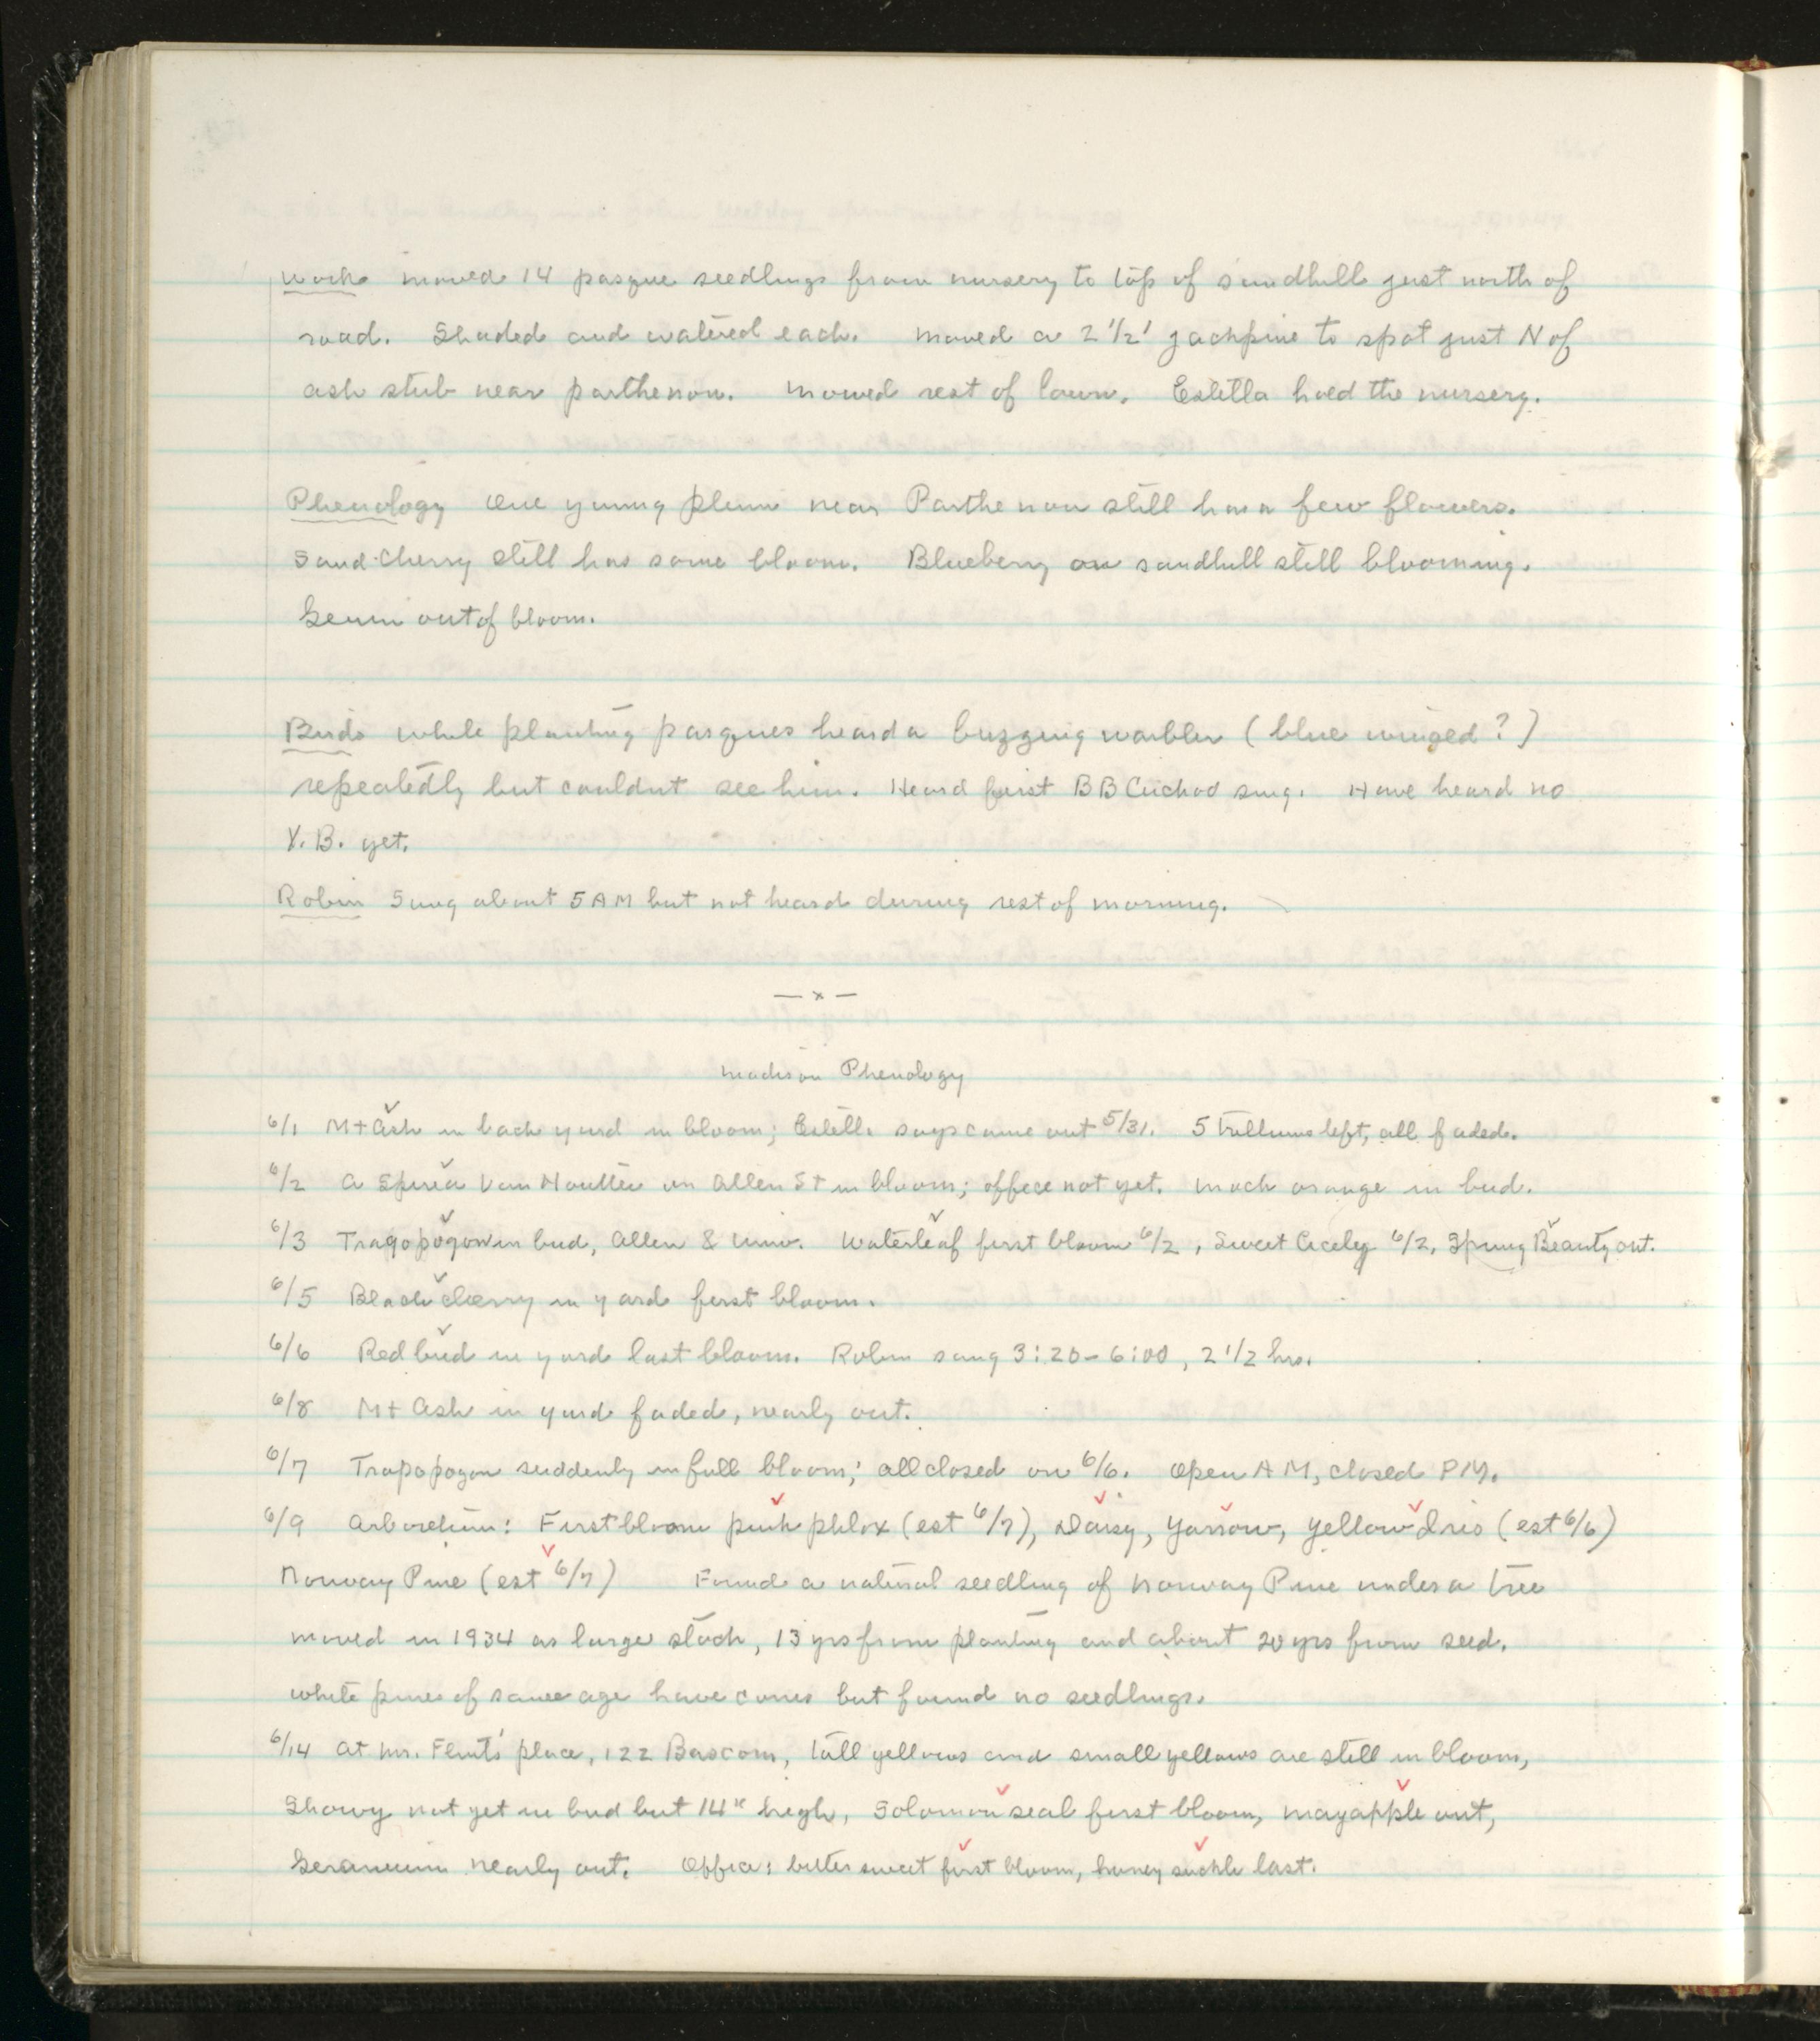 Work moved 14 pasque seedlings from nursery to top of sandhill just north of
road. Shaded and watered each. Moved a 2 1/2' jackpine to spot just N of
ash stub near parthenon. Mowed rest of lawn. Estella hoed the nursery.
Phenology One young plum near Parthenon still has a few flowers.
Sand Cherry still has some bloom. Blueberry on sandhill still blooming.
Geum out of bloom.
Birds While planting pasques heard a buzzing warbler (blue winged?)
repeatedly but couldnt see him. Heard first BB Cuckoo sing. Have heard no
Y.B. yet.
Robin Sang about 5 AM but not heard during rest of morning.
— x —
Madison Phenology
6/1 Mt Ash in back yard in bloom; Estella says came out 5/31. 5 Trilliums left, all faded.
6/2 A Spirea Van Houttei on Allen St in bloom; office not yet. Mock orange in bud.
6/3 Tragopogon in bud, Allen & Univ. Waterleaf first bloom 6/2, Sweet Cicely 6/2, Spring Beauty out.
6/5 Black cherry in yard first bloom.
6/6 Redbud in yard last bloom. Robin sang 3:20-6:00, 2 1/2 hrs.
6/8 Mt Ash in yard faded, nearly out.
6/7 Tragopogon suddenly in full bloom; all closed on 6/6. Open AM, closed PM.
6/9 Arboretum: First bloom pink phlox (est 6/7), Daisy, Yarrow, Yellow Iris (est 6/6)
Norway Pine (est 6/7) Found a natural seedling of Norway Pine under a tree
moved in 1934 as large stock, 13 yrs from planting and about 20 yrs from seed.
White pines of same age have cones but found no seedlings.
6/14 At Mr. Flint's place, 122 Bascom, tall yellows and small yellows are still in bloom,
Showy not yet in bud but 14" high, Solomon seal first bloom, mayapple out,
Geranium nearly out. Office: bittersweet first bloom, honeysuckle last.